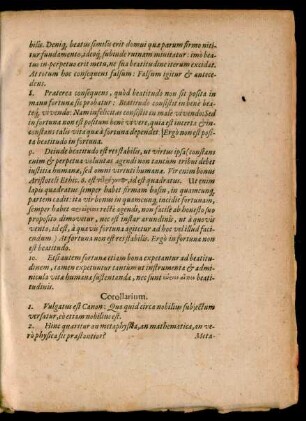 bilis. Deniq, beatus similis erit domui quæ parum firmo niti-
tur fundamento, ideoq, subinde ruinam minitatur: imò bea-
tus in perpetuo erit metu, ne sua beatitudine iterum excidat.
At totum hoc consequens falsum: Falsum igitur & antece-
dens.
8. Præterea consequens, quòd beatitudo non sit posita in
mana fortuna sic probatur: Beatitudo consistit in bene beateq́;
vivendo: Nam infelicitas consistit in malè vivendo: Sed
in fortuna non est positum benè vivere, quia est incerta & in-
constans talis vita quæ à fortuna dependet: Ergò non est posi-
ta beatitudo in fortuna.
9. Deinde beatitudo est res stabilis, ut virtus ipsa: constans
enim & perpetua voluntas agendi non tantùm tribui debet
iustitia humana, sed omni varietati humanæ. Vir enim bonus
Aristoteli Ethic. a. est id est quadratus. Ut enim
lapis quadratus semper habet firmam basin, in quamcunq,
partem cadit: ita vir bonus in quamcunq, inciderit fortunam,
semper habet rectè agendi, nec facilè ab honesto suo
proposito dimovetur, nec est instar arundinis, ut à quovis
vento, id est, à quavis fortuna agitetur ad hoc vel illud faci-
endum: At fortuna non est res stabilis. Ergò in fortuna non
est beatitudo.
10. Etsi autem fortuna etiam bona expetantur ad beatitu-
dinem, tamen expetuntur tantum ut instrumenta & admi-
nicula vitæ humanæ sustentandæ, nec sunt bea-
titudinis.
Corollarium.
1. Vulgatus est Canon: Quo quid circa nobilius subjectum
versatur, eò etiam nobilius est.
2. Hinc quæritur an metaphysica, an mathematica, an ve-
rò physica sit præstantior?
Meta-